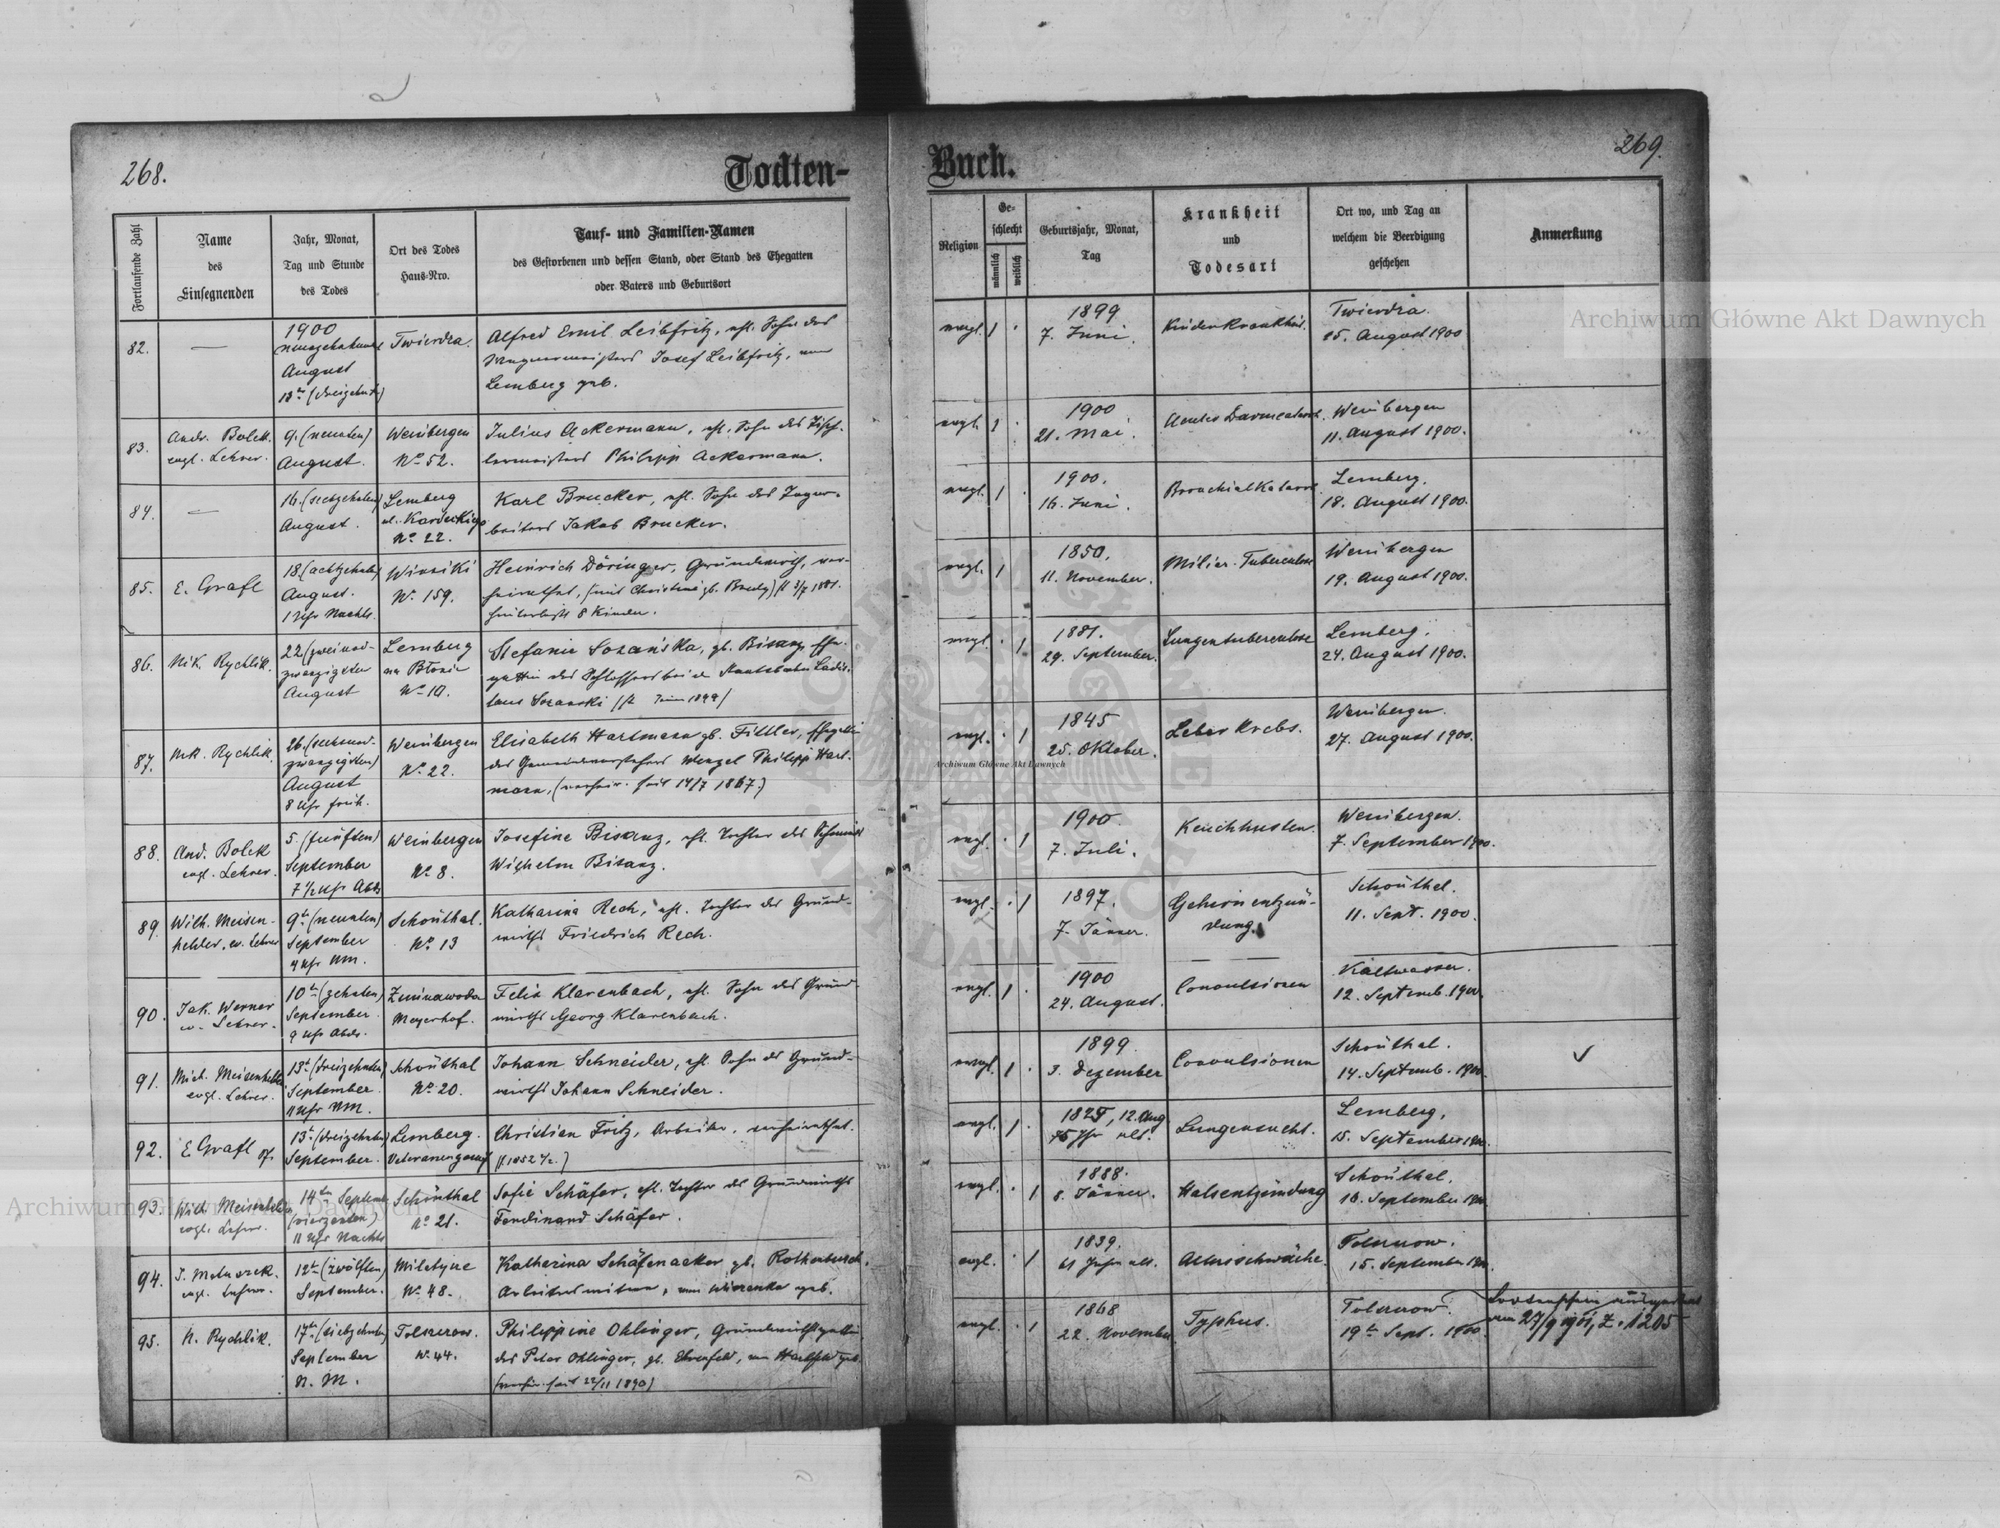 268.
Todten-
Fortlaufende Zahl
Name
des
Einsegnenden
Jahr, Monat,
Tag und Stunde
des Todes
Ort des Todes
Haus-Nro.
Tauf- und Familien-Namen
des Gestorbenen und dessen Stand, oder Stand des Ehegatten
oder Vaters und Geburtsort
82.
—
1900
August
13te (dreizehnte)
Twierdza.
Alfred Emil Leibfritz, ehl. Sohn des
Wagnermeisters Josef Leibfritz, von
Lemberg geb.
83.
Andr. Bolek
evgl. Lehrer.
9. (neunten)
August.
Weinbergen
No 52.
Julius Ackermann, ehl. Sohn des Tisch-
lermeisters Philipp Ackermann.
84.
—
16. (sechzehnten)
August.
Lemberg
No. 22.
Karl Brucker, ehl. Sohn des
Jakob Brucker.
85.
E. Grafl
18. (achtzehnten)
August.
1 Uhr Nachts.
Winniki
No. 159.
Heinrich Döringer, Grundwirth, ver-
heirathet, (mit Christine gb. 3/7 1881.
hinterließ 8 Kinder.
86.
Nik. Rychlik.
22 (zweiund-
zwanzigsten
August
Lemberg
na Błonie
No 10.
Stefanie Sozańska, gb. Bisanz, Ehe-
gattin des Schlossers bei der Staatsbahn Ladis-
laus Sozanski 1899)
87.
Nik. Rychlik.
26. (sechsund-
zwanzigsten)
August
8 Uhr früh.
Weinbergen
No. 22.
Elisabeth Hartmann gb. Fittler, Ehegattin
des Gemeindevorstehers Wenzel Philipp Hart-
mann, (verheir. seit 14/7 1867.)
88.
And. Bolek
evgl. Lehrer.
5. (fünften)
September
7 1/2 Uhr Abds
Weinbergen
No 8.
Josefine Bisanz, ehl. Tochter des Schmieds
Wilhelm Bisanz.
89.
Wilh. Meisen-
helder, ev. Lehrer
9te (neunten)
September
4 Uhr NM.
Schönthal.
No 13
Katharina Rech, ehl. Tochter des Grund-
wirths Friedrich Rech.
90.
Jak. Werner
ev. Lehrer.
10te (zehnten)
September
9 Uhr Abds.
Zimnawoda
Meyerhof.
Felix Klarenbach, ehl. Sohn des Grund-
wirths Georg Klarenbach.
91.
Mich. Meisenhelder
evgl. Lehrer.
13te (dreizehnten)
September
11 Uhr NM.
Schönthal
No. 20.
Johann Schneider, ehl. Sohn des Grund-
wirths Johann Schneider.
92.
E. Grafl
13te (dreizehnten)
September.
Lemberg.
Christian Fritz, Arbeiter, verheirathet.
93.
Wilh. Meisenhelder
evgl. Lehrer.
14ten September
(vierzehnten)
11 Uhr Nachts
Schönthal
No. 21.
Sofie Schäfer, ehl. Tochter des Grundwirths
Ferdinand Schäfer.
94.
evgl. Lehrer.
12te (zwölften)
September.
No. 48.
Katharina Schäfenacker gb. Rothenbusch,
Arbeiterswitwe, von geb.
95.
N. Rychlik.
17ten (siebzehnten)
September
N. M.
Tolszczow.
No. 44.
Philippine Ohlinger, Grundwirthsgattin
des Peter Ohlinger, gb. Ehrenfeld, von geb.
(verheir. seit 22/11 1890)
269.
Buch.
Religion
Ge-
schlecht
männlich
weiblich
Geburtsjahr, Monat,
Tag
Krankheit
und
Todesart
Ort wo, und Tag an
welchem die Beerdigung
geschehen
Anmerkung
evgl.
1
1899
7. Juni.
Kinderkrankht.
Twierdza.
15. August 1900
evgl.
1
1900
21. Mai.
Acuter Darmcatarrh
Weinbergen
11. August 1900.
evgl.
1
1900.
16. Juni.
Bronchialkatarrh
Lemberg.
18. August 1900.
evgl.
1
1850.
11. November.
Miliar-Tuberculose
Weinbergen
19. August 1900.
evgl.
1
1881.
29. September.
Lungentuberculose
Lemberg.
24. August 1900.
evgl.
1
1845
25. Oktober.
Leberkrebs.
Weinbergen.
27. August 1900.
evgl.
1
1900.
7. Juli.
Keuchhusten.
Weinbergen.
7. September 1900.
evgl.
1
1897.
7. Jänner.
Gehirnentzün-
dung.
Schönthal.
11. Sept. 1900.
evgl.
1
1900
24. August.
Convulsionen
Kaltwasser.
12. Septemb. 1900.
evgl.
1
1899
3. Dezember
Convulsionen
Schönthal.
14. Septemb. 1900.
evgl.
1
1825, 12. Aug
75 Jhr alt.
Lungensucht.
Lemberg.
15. September 1900.
evgl.
1
1888.
8. Jänner.
Halsentzündung
Schönthal.
16. September 1900.
evgl.
1
1839.
61 Jahre alt.
Altersschwäche.
Tolszczow.
15. September 1900.
evgl.
1
1868
22. November
Typhus.
Tolszczow.
19te Sept. 1900.
Todtenschein ausgestellt
am 27/9 1901, Z. 1205
Archiwum Główne Akt Dawnych
Archiwum Główne Akt Dawnych
Archiwum Główne Akt Dawnych